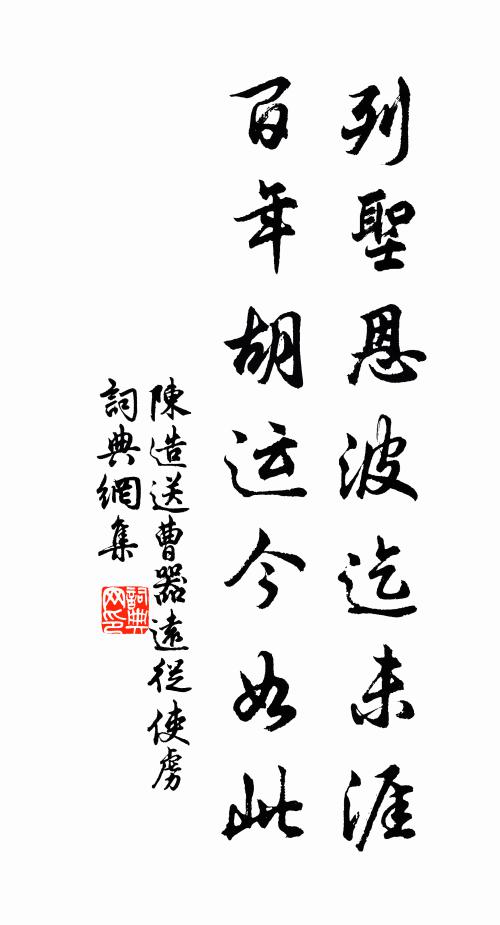 列聖恩波迄未涯
百年胡运今如此
陳造送曹器遠從使虜
詞典網集
詞典网印